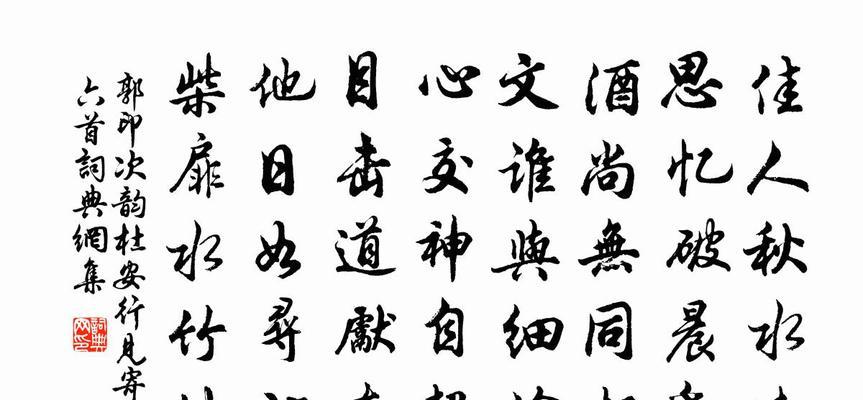 佳人秋水
思忆破晨
酒尚無同
文谁與细
心交神自
目击道獻
他日如尋
柴扉水竹
郭印次韵杜安行见寄
六首詞典網集
詞典网印